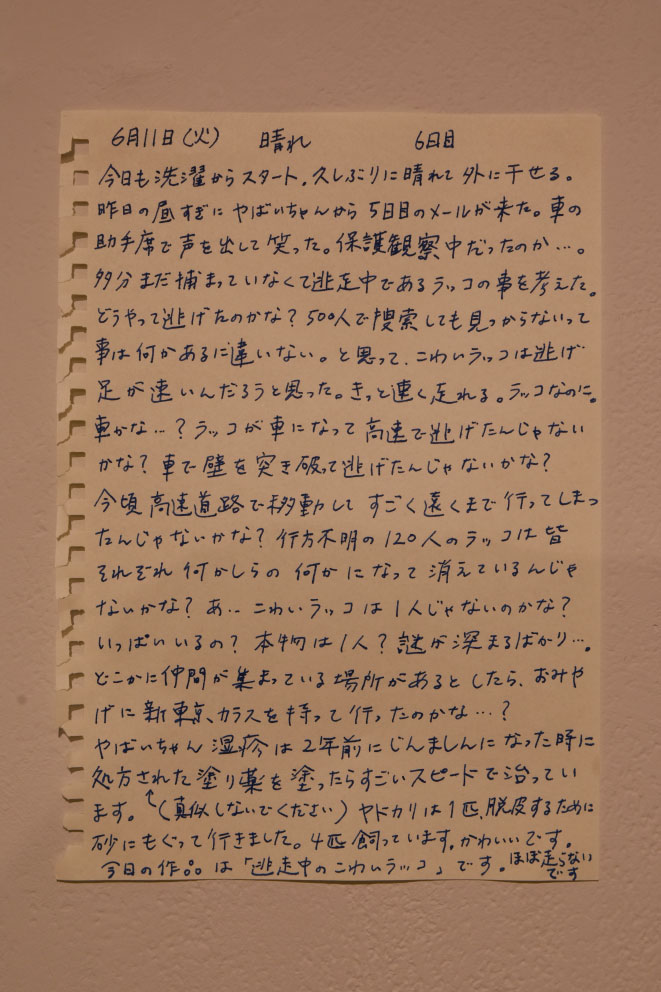 6月11日(火) 晴れ 6日目
今日も洗濯からスタート。久しぶりに晴れて外に干せる。
昨日の昼すぎにやばいちゃんから5日目のメールが来た。車の
助手席で声を出して笑った。保護観察中だったのか…。
多分まだ捕まっていなくて逃走中であるラッコの事を考えた。
どうやって逃げたのかな?500人で捜索しても見つからないって
事は何かあるに違いない。と思って、こわいラッコは逃げ
足が速いんだろうと思った。きっと速く走れる。ラッコなのに。
車かな…?ラッコが車になって高速で逃げたんじゃない
かな?車で壁を突き破って逃げたんじゃないかな?
今頃高速道路で移動してすごく遠くまで行ってしまっ
たんじゃないかな?行方不明の120人のラッコは皆
それぞれ何かしらの何かになって消えているんじゃ
ないかな?あ..こわいラッコは1人じゃないのかな?
いっぱいいるの?本物は1人?謎が深まるばかり…。
どこかに仲間が集まっている場所があるとしたら、おみや
げに新東京、カラスを持って行ったのかな…?
やばいちゃん湿疹は2年前にじんましんになった時に
処方された塗り薬を塗ったらすごいスピードで治ってい
ます。↖(真似しないでください)ヤドカリは1匹、脱皮するために
砂にもぐって行きました。4匹飼っています。かわいいです。
今日の作品は「逃走中のこわいラッコ」です。ほぼ走らない
です